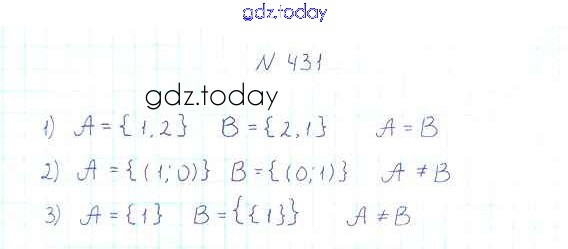 gdz.today
N 431
gdz.today
1) A = {1, 2} B = {2, 1} A = B
2) A = {(1; 0)} B = {(0; 1)} A ≠ B
3) A = {1} B = {{1}} A ≠ B